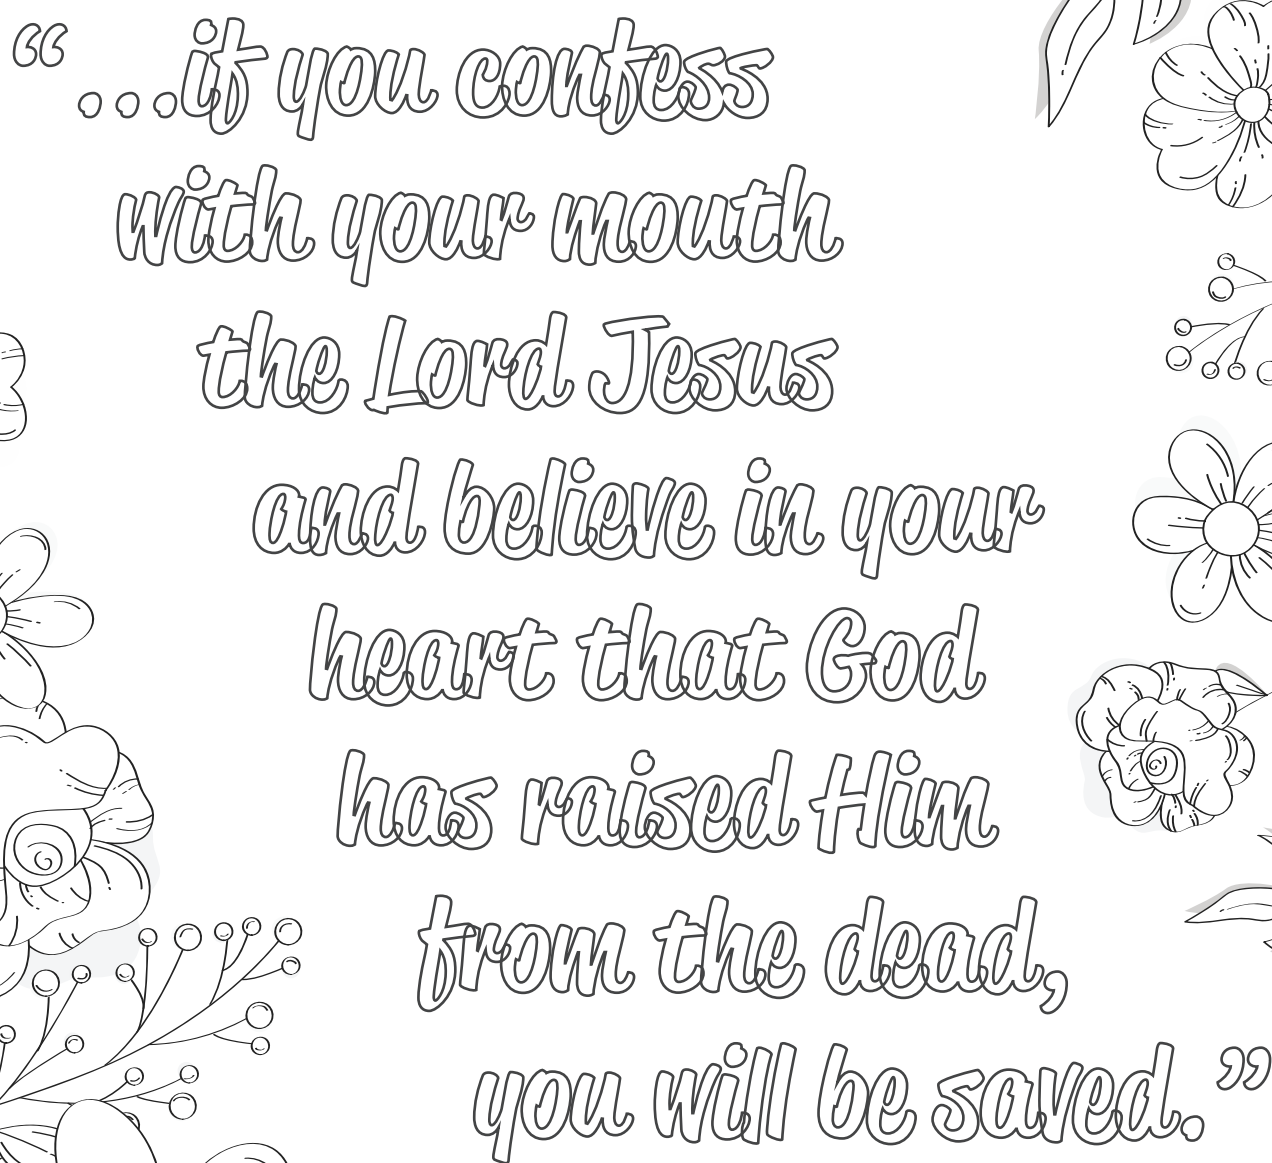 “ ...if you confess
with your mouth
the Lord Jesus
and believe in your
heart that God
has raised Him
from the dead,
you will be saved.”